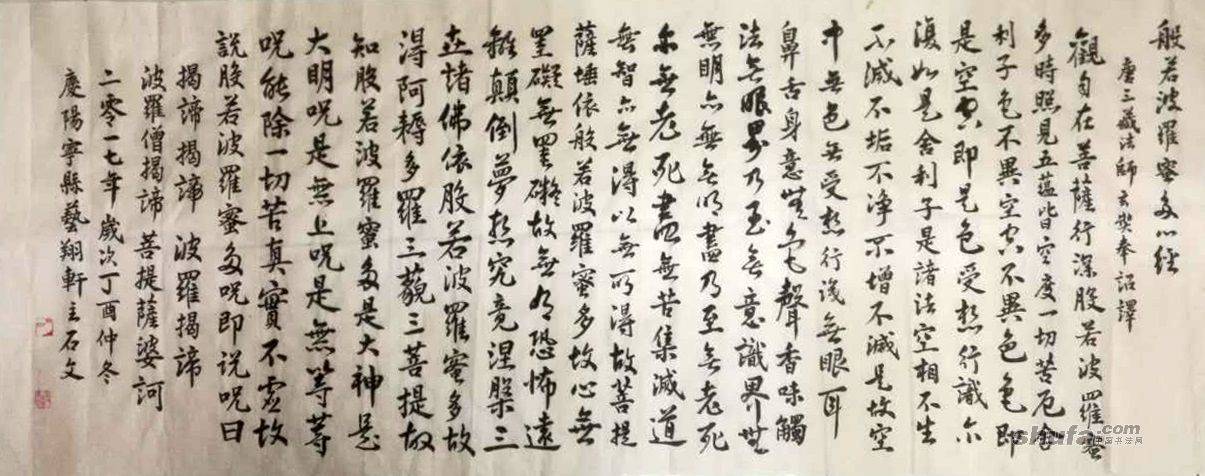 般若波羅蜜多心經
唐三藏法師玄奘奉詔譯
觀自在菩薩行深般若波羅蜜
多時照見五蘊皆空度一切苦厄舍
利子色不異空空不異色色即
是空空即是色受想行識亦
復如是舍利子是諸法空相不生
不滅不垢不净不增不減是故空
中無色無受想行識無眼耳
鼻舌身意無色聲香味觸
法無眼界乃至無意識界無
無明亦無無明盡乃至無老死
亦無老死盡無苦集滅道
無智亦無得以無所得故菩提
薩埵依般若波羅蜜多故心無
罣礙無罣礙故無有恐怖遠
離顛倒夢想究竟涅槃三
世諸佛依般若波羅蜜多故
得阿耨多羅三藐三菩提故
知般若波羅蜜多是大神是
大明呪是無上呪是無等等
呪能除一切苦真實不虛故
說般若波羅蜜多呪即说呪曰
揭諦揭諦 波羅揭諦
波羅僧揭諦 菩提薩婆訶
二零一七年歲次丁酉仲冬
慶陽寧縣藝翔軒主石文
shufai.com
中国书法网